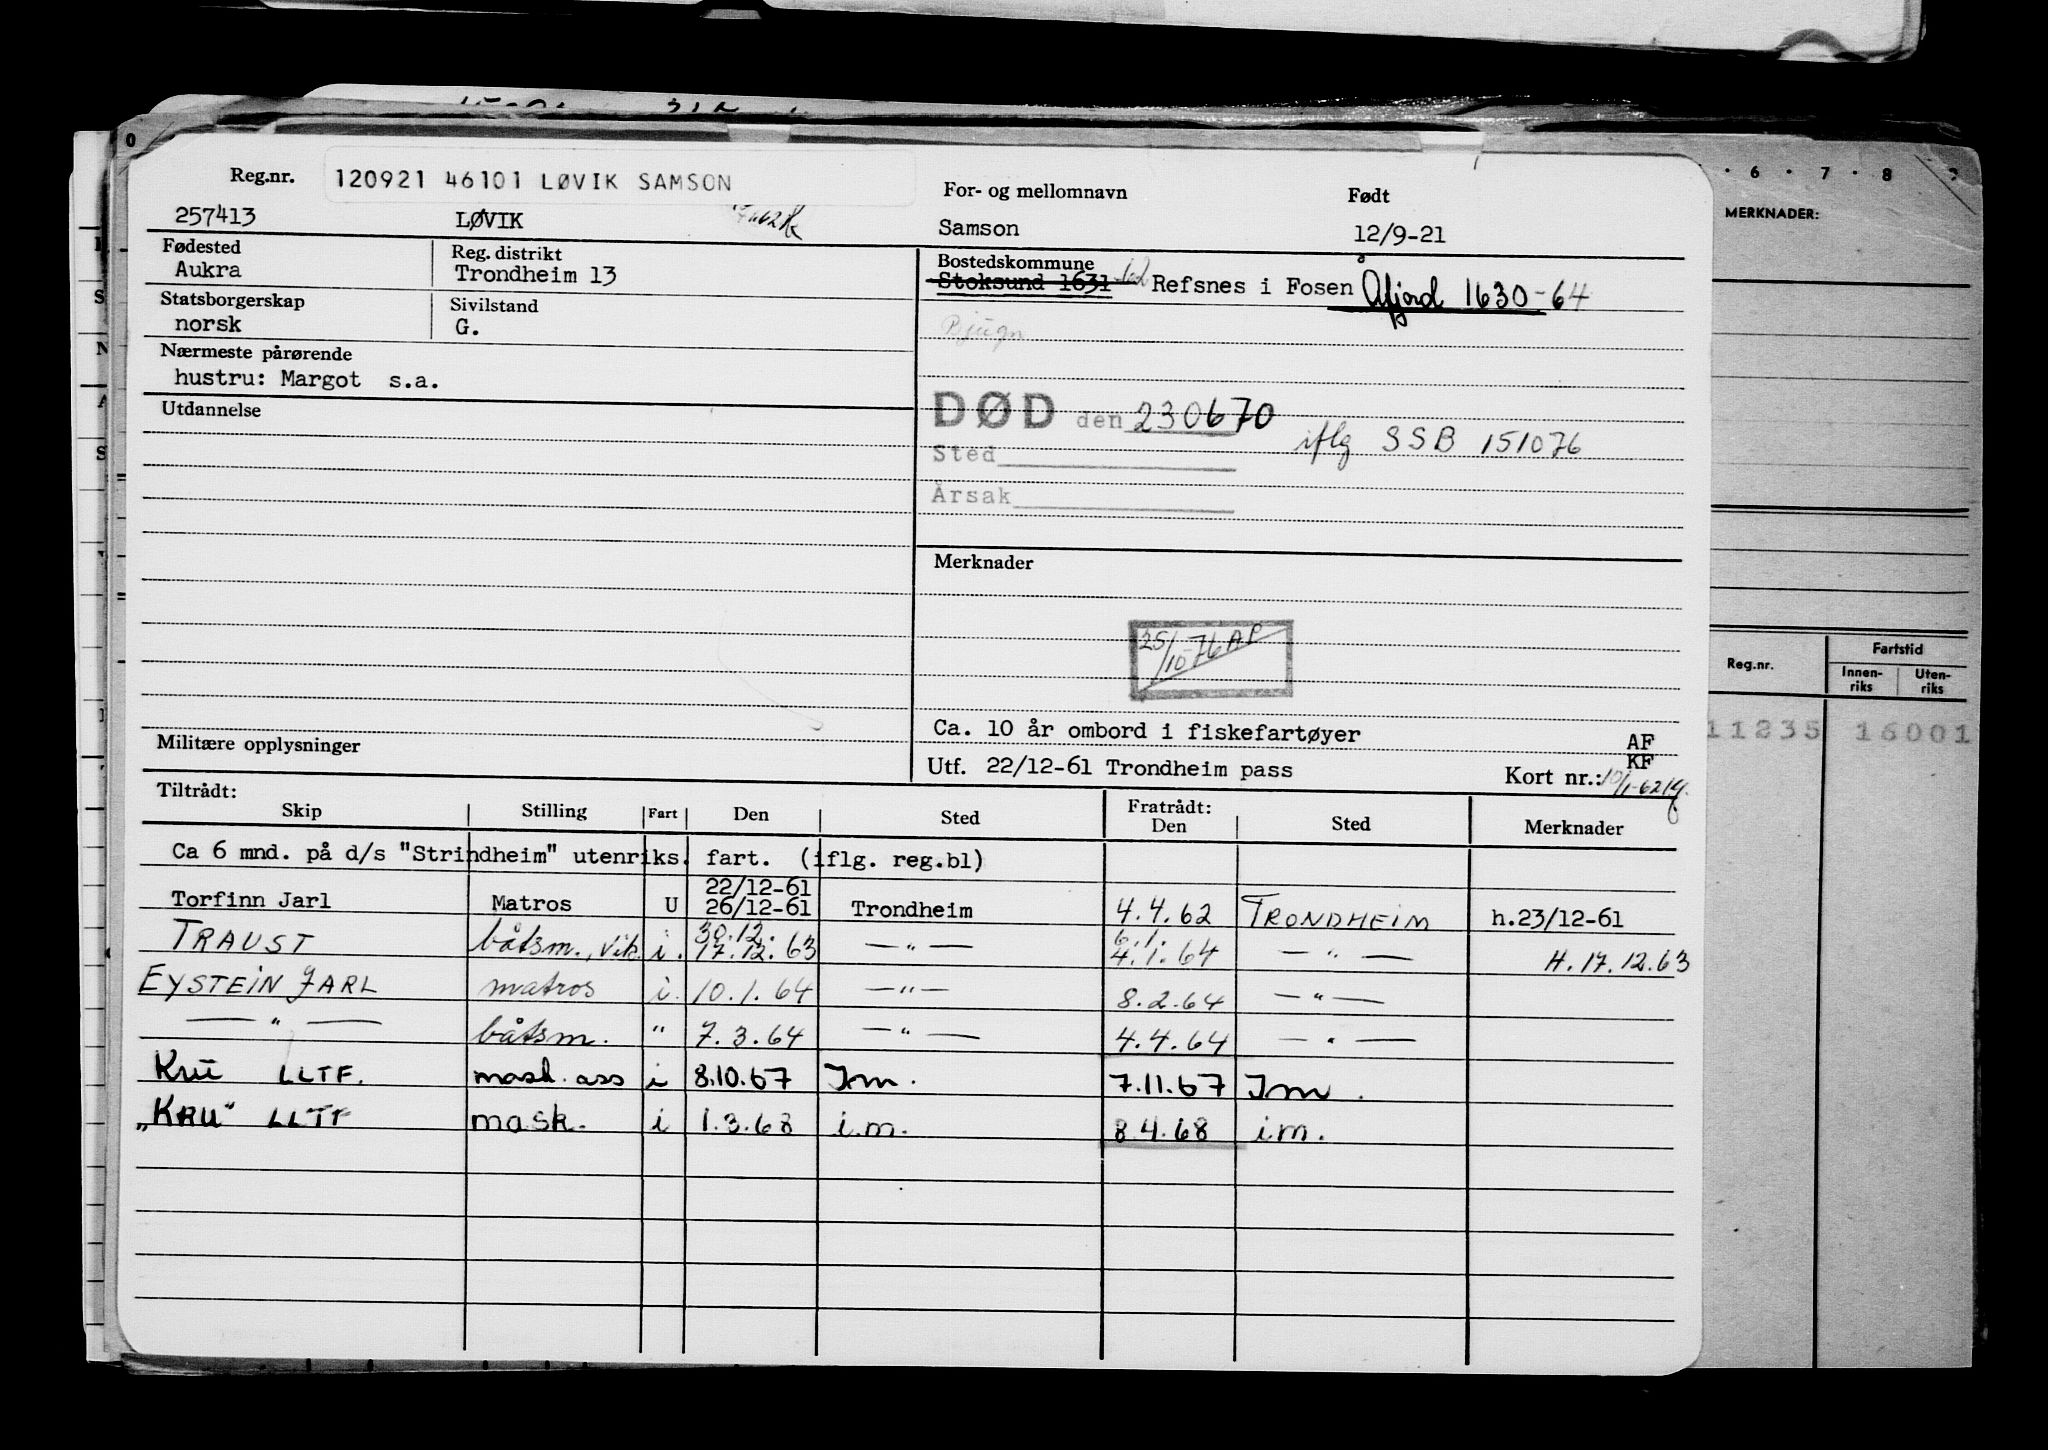 0
6 7 8
MERKNADER:
Reg.nr. 120921 46101 LØVIK SAMSON
For- og mellomnavn Født
257413 LØVIK Samson 12/9-21
Fødested Reg. distrikt Bostedskommune
Aukra Trondheim 13 Stoksund 1631 Refsnes i Fosen Åfjord 1630-64
Statsborgerskap Sivilstand
norsk G. Bjugn
Nærmeste pårørende
hustru: Margot s.a.
Utdannelse
DØD den 230670 iflg SSB 151076
Sted
Årsak
Merknader
25/10-76 AP
Ca. 10 år ombord i fiskefartøyer AF
KF
Militære opplysninger Utf. 22/12-61 Trondheim pass Kort nr.: 10/1-62
Reg.nr. Fartstid
Innen-riks Uten-riks
11235 16001
Tiltrådt: Fratrådt:
Skip Stilling Fart Den Sted Den Sted Merknader
Ca 6 mnd. på d/s "Strindheim" utenriks. fart. (iflg. reg.bl)
22/12-61
Torfinn Jarl Matros U 26/12-61 Trondheim 4.4.62 TRONDHEIM h.23/12-61
30.12. 6.1.
TRAUST båtsm., vik. i. 17.12.63 — " — 4.1.64 — " — H. 17.12.63
EYSTEIN JARL matros i. 10.1.64 — " — 8.2.64 — " —
— " — båtsm. " 7.3.64 — " — 4.4.64 — " —
KRU LLTF. mask. ass i 8.10.67 Im. 7.11.67 Im.
„KRU" LLTF mask. i 1.3.68 i.m. 8.4.68 i.m.